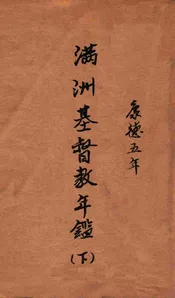 康德五年
满洲基督教年鑑
(下)